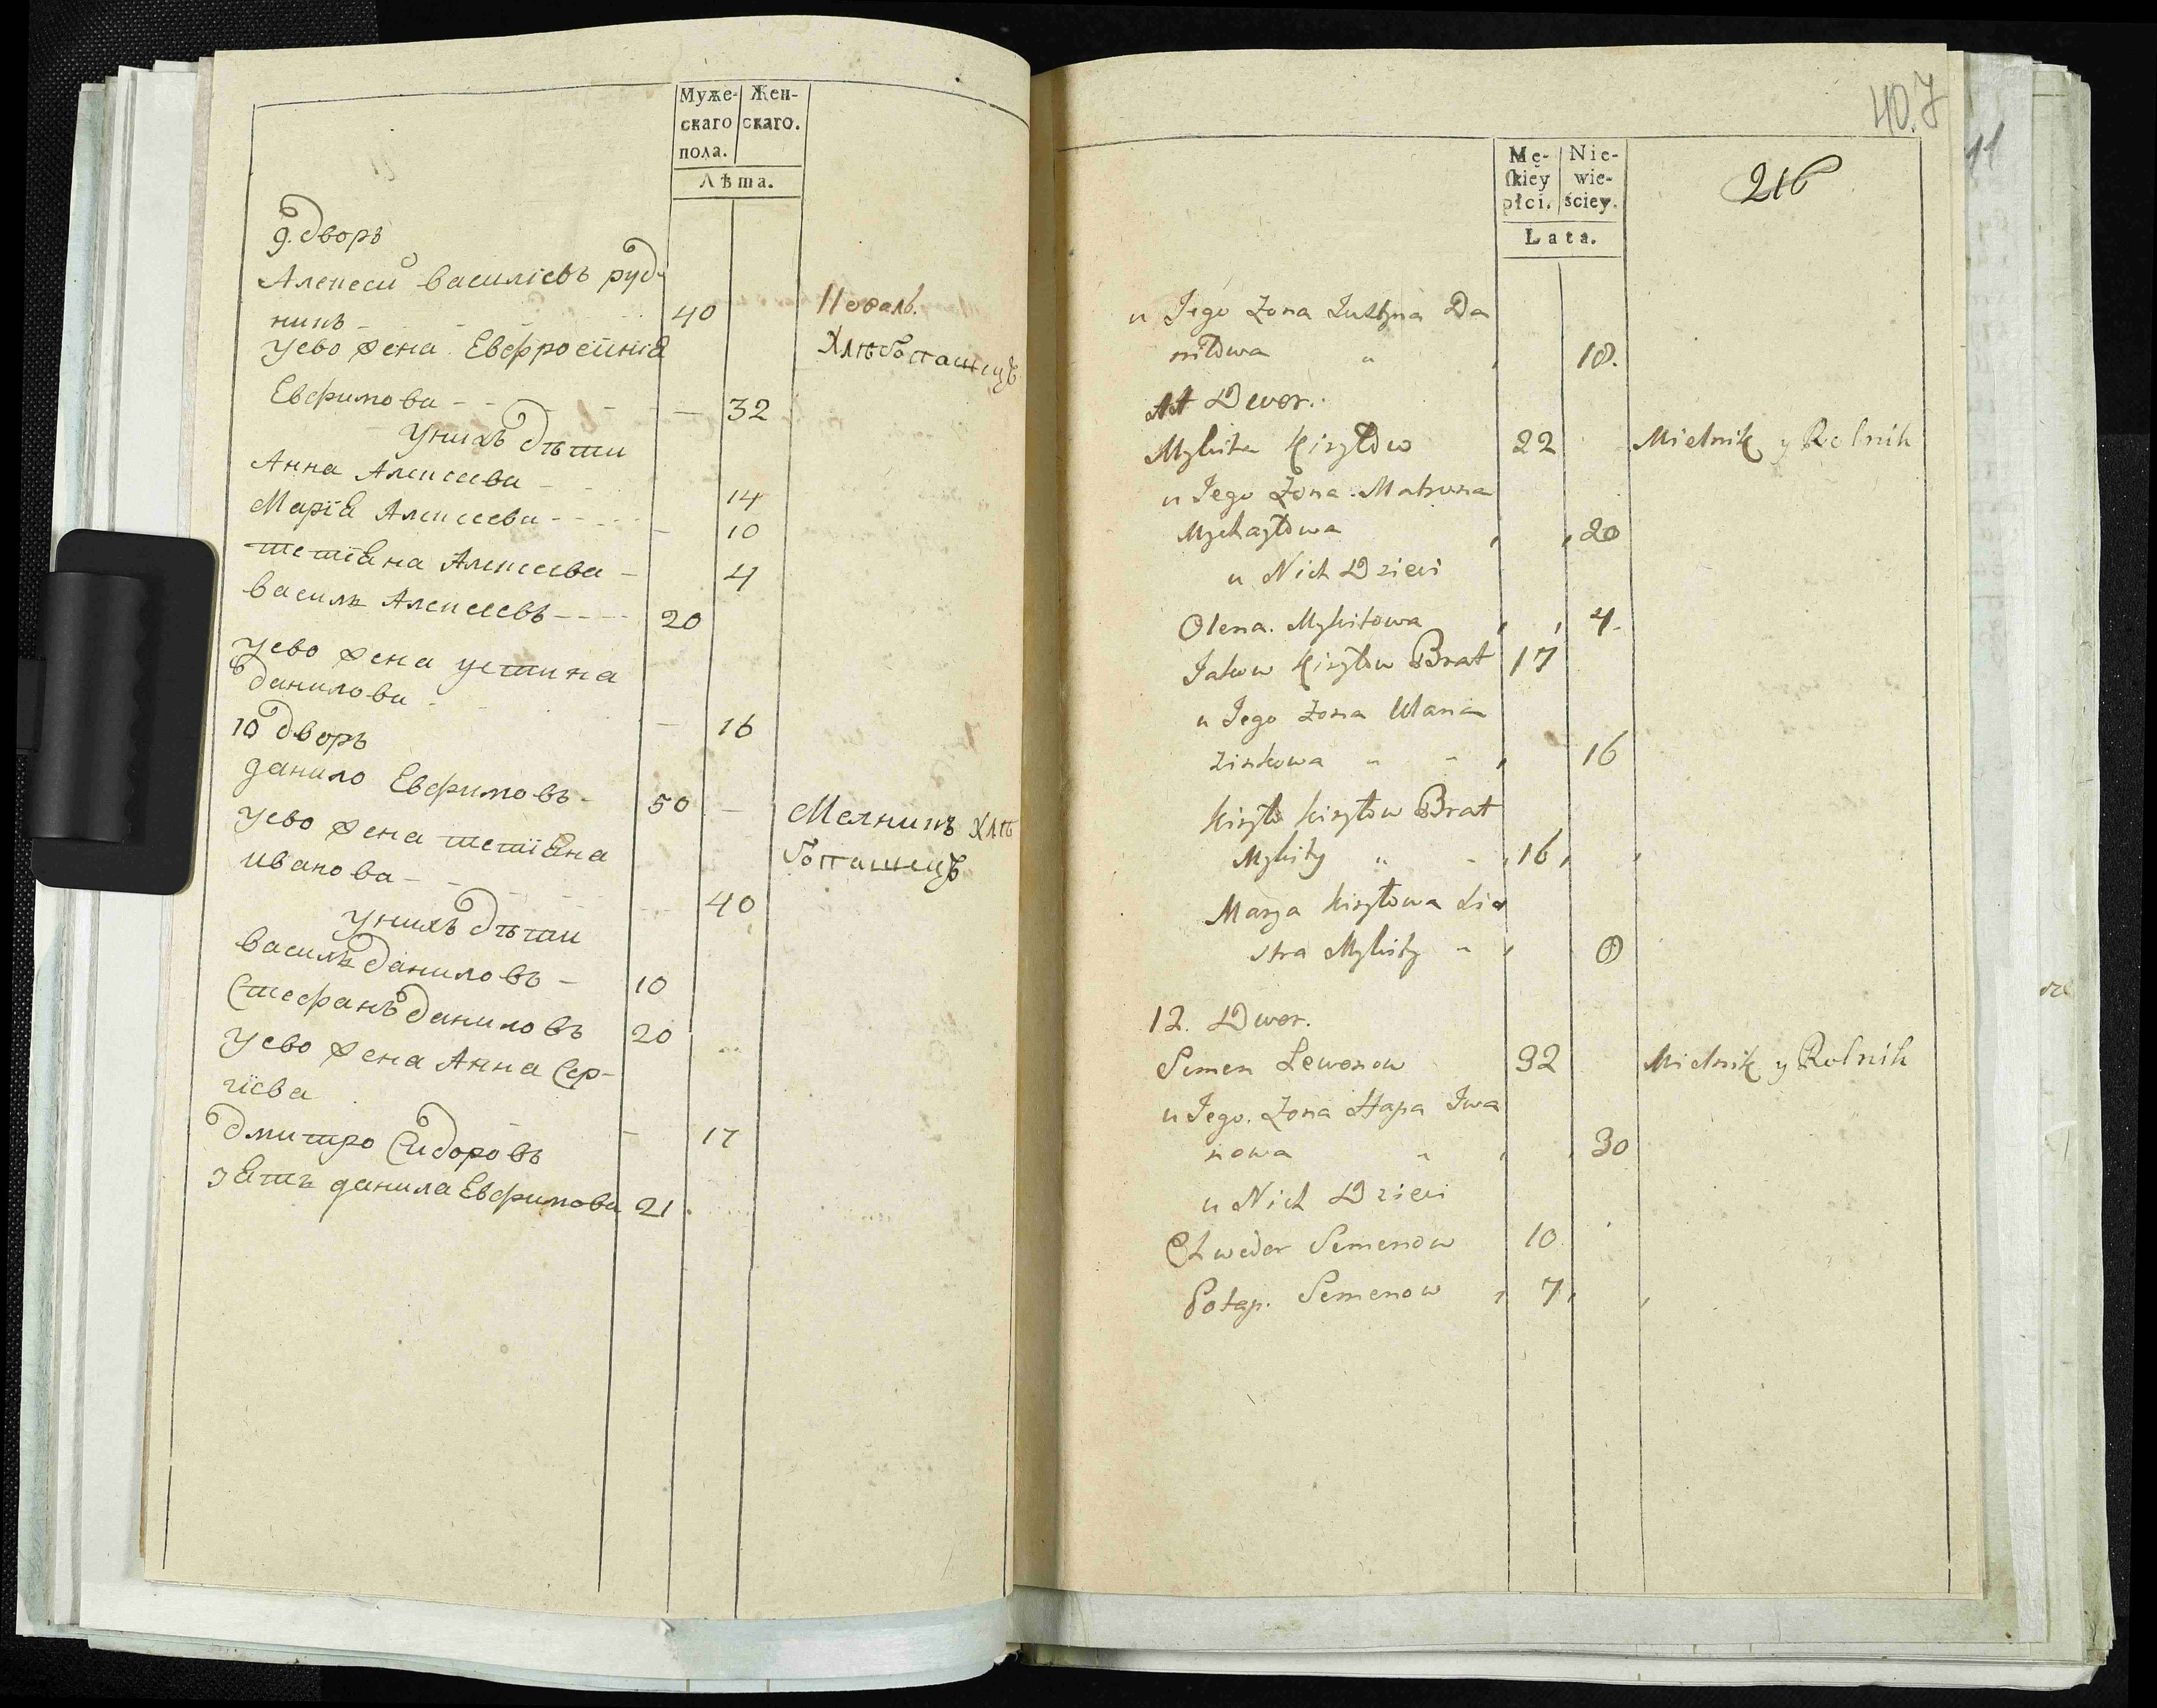 Муже- Жен-
скаго скаго.
пола.
Лѣта.
9. дворъ
Алексей василіевъ руд-
никъ 40 Коваль.
уево жена Евфросинія Хлѣбопашецъ
Евфимова - - - 32
унихъ дѣти
Анна Алексеева - 14
Марія Алексеева - - - 10
тетіяна Алексеева - 4
василь Алексеевъ - - - 20
уево жена устина
данилова - 16
10 дворъ
данило Евфимовъ - 50 Мелникъ Хлѣ
уево жена тетіяна бопашецъ
иванова - - 40
унихъ дѣти
василь даниловъ - 10
Стефанъ даниловъ 20
уево жена Анна Сер-
гіева 17
дмитро Сидоровъ
зять данила Евфимова 21.
40.
11
216
Mę- Nie-
skiey wie-
płci. ściey.
Lata.
u Jego Zona Justyna Da
niłowa " 18.
11 Dwor.
Mykita Kiryłow 22 Mielnik y Rolnik
u Jego Zona Matrona
Mychayłowa 20
u Nich Dzieci
Olena. Mykitowa 4.
Jakow Kiryłow Brat 17
u Jego Zona Ulana
Zinkowa " - 16
Kiryło Kiryłow Brat
Mykity " - 16
Marya Kiryłowa Sio
stra Mykity -
12. Dwor.
Semen Lewonow 32 Mielnik y Rolnik
u Jego. Zona Hapa Iwa
nowa " 30
u Nich Dzieci
Chweder Semenow 10
Potap. Semenow 7